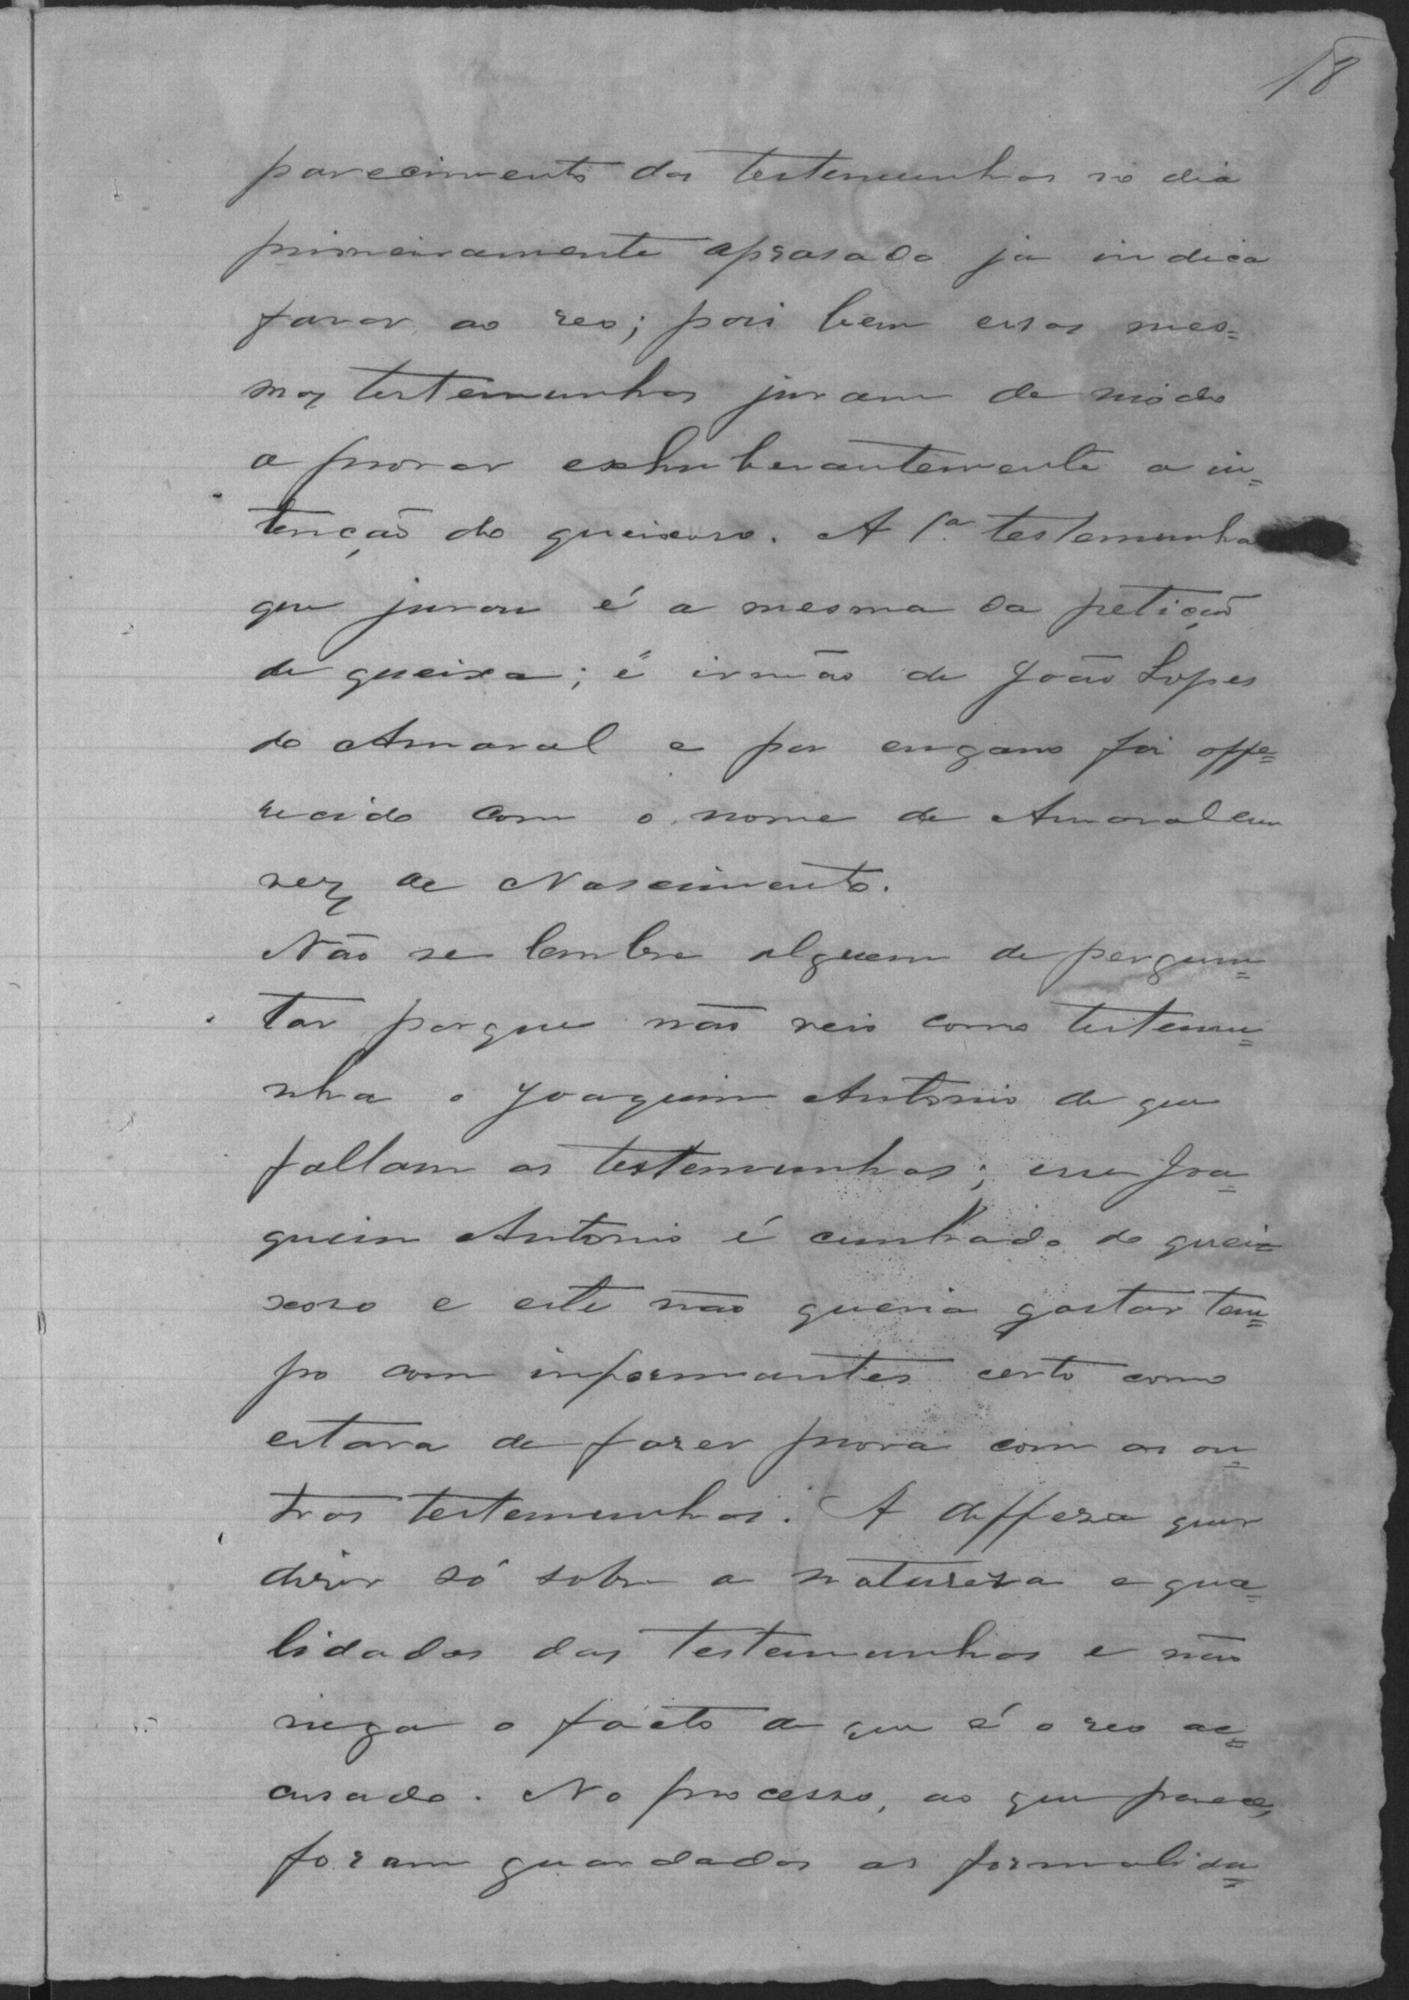 18
parecimento das testemunhas no dia
primeiramente aprasado ja indica
favor ao reo; pois bem essas mes=
mas testemunhas juram de modo
a provar exhuberantemente a in=
tenção do queixoso. A 1ª testemunha
que jurou é a mesma da petição
de queixa; é irmão de João Lopes
do Amaral e por engano foi offe=
recido com o nome de Amaral em
vez de Nascimento.
Não se lembre alguem de pergun=
tar porque não veio como testemu=
nha o Joaquim Antonio de que
fallam as testemunhas; esse Joa=
quim Antonio é cunhado do quei=
xoso e este não queria gastar tem=
po com informantes certo como
estava de fazer prova com as ou=
tras testemunhas. A deffeza quer
dizer só sobre a natureza e qua=
lidades das testemunhas e não
nega o facto de que é o reo ac=
cusado. No processo, ao que parece,
foram guardadas as formalida=